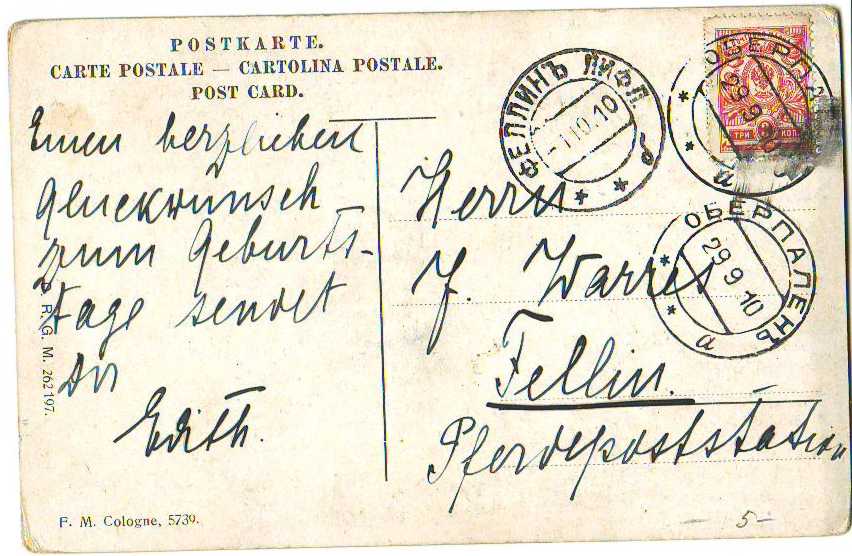 POSTKARTE.
CARTE POSTALE — CARTOLINA POSTALE.
POST CARD.
Einen herzlichen
Glückwunsch
zum Geburts-
tage sendet
Dir
Edith.
Herrn
J. Warres
Fellin.
Pferdepoststation
ФЕЛЛИНЪ ЛИФЛ.
1 10. 10
ТРИ 3 КОП
29 9
а
ОБЕРПАЛЕНЪ
29 9 10
а
R. G. M. 262197.
F. M. Cologne, 5739.
— 5 —